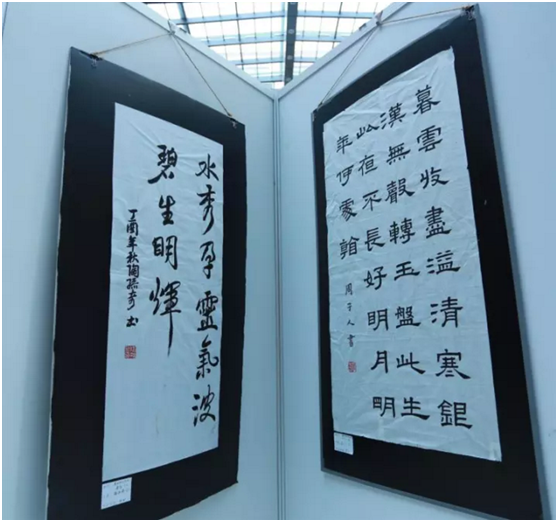 水秀孕靈氣波
碧生明輝
丁酉年秋陶
暮雲收盡溢清寒銀
漢無聲轉玉盤此生
此夜不長好明月明
年何處看